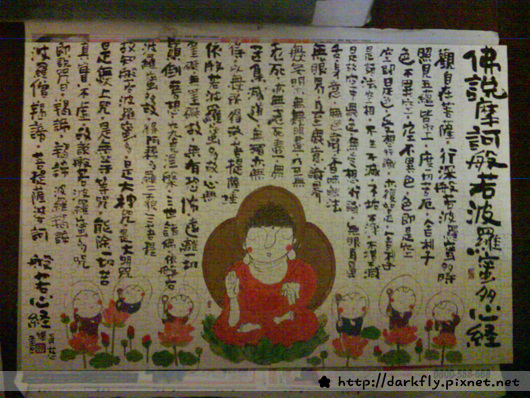 佛說摩訶般若波羅蜜多心経
觀自在菩薩行深般若波羅蜜多時
照見五蘊皆空度一切苦厄舍利子
色不異空空不異色色即是空
空即是色受想行識亦復如是舍利子
是諸法空相不生不滅不垢不淨不增不減
是故空中無色無受想行識無眼耳鼻
舌身意無色聲香味觸法
無眼界乃至無意識界
無無明亦無無明盡乃至
老死亦無老死盡無
苦集滅道無智亦無
得以無所得故菩提薩埵
依般若波羅蜜多故心無
罣礙無罣礙故無有恐怖遠離一切
顛倒夢想究竟涅槃三世諸佛依般若
波羅蜜多故得阿耨多羅三藐三菩提
故知般若波羅蜜多是大神咒是大明咒
是無上咒是無等等咒能除一切苦
真實不虛故說般若波羅蜜多咒
即說咒曰揭諦揭諦波羅揭諦
波羅僧揭諦菩提薩婆訶 般若心経
http://darkfly.pixnet.net